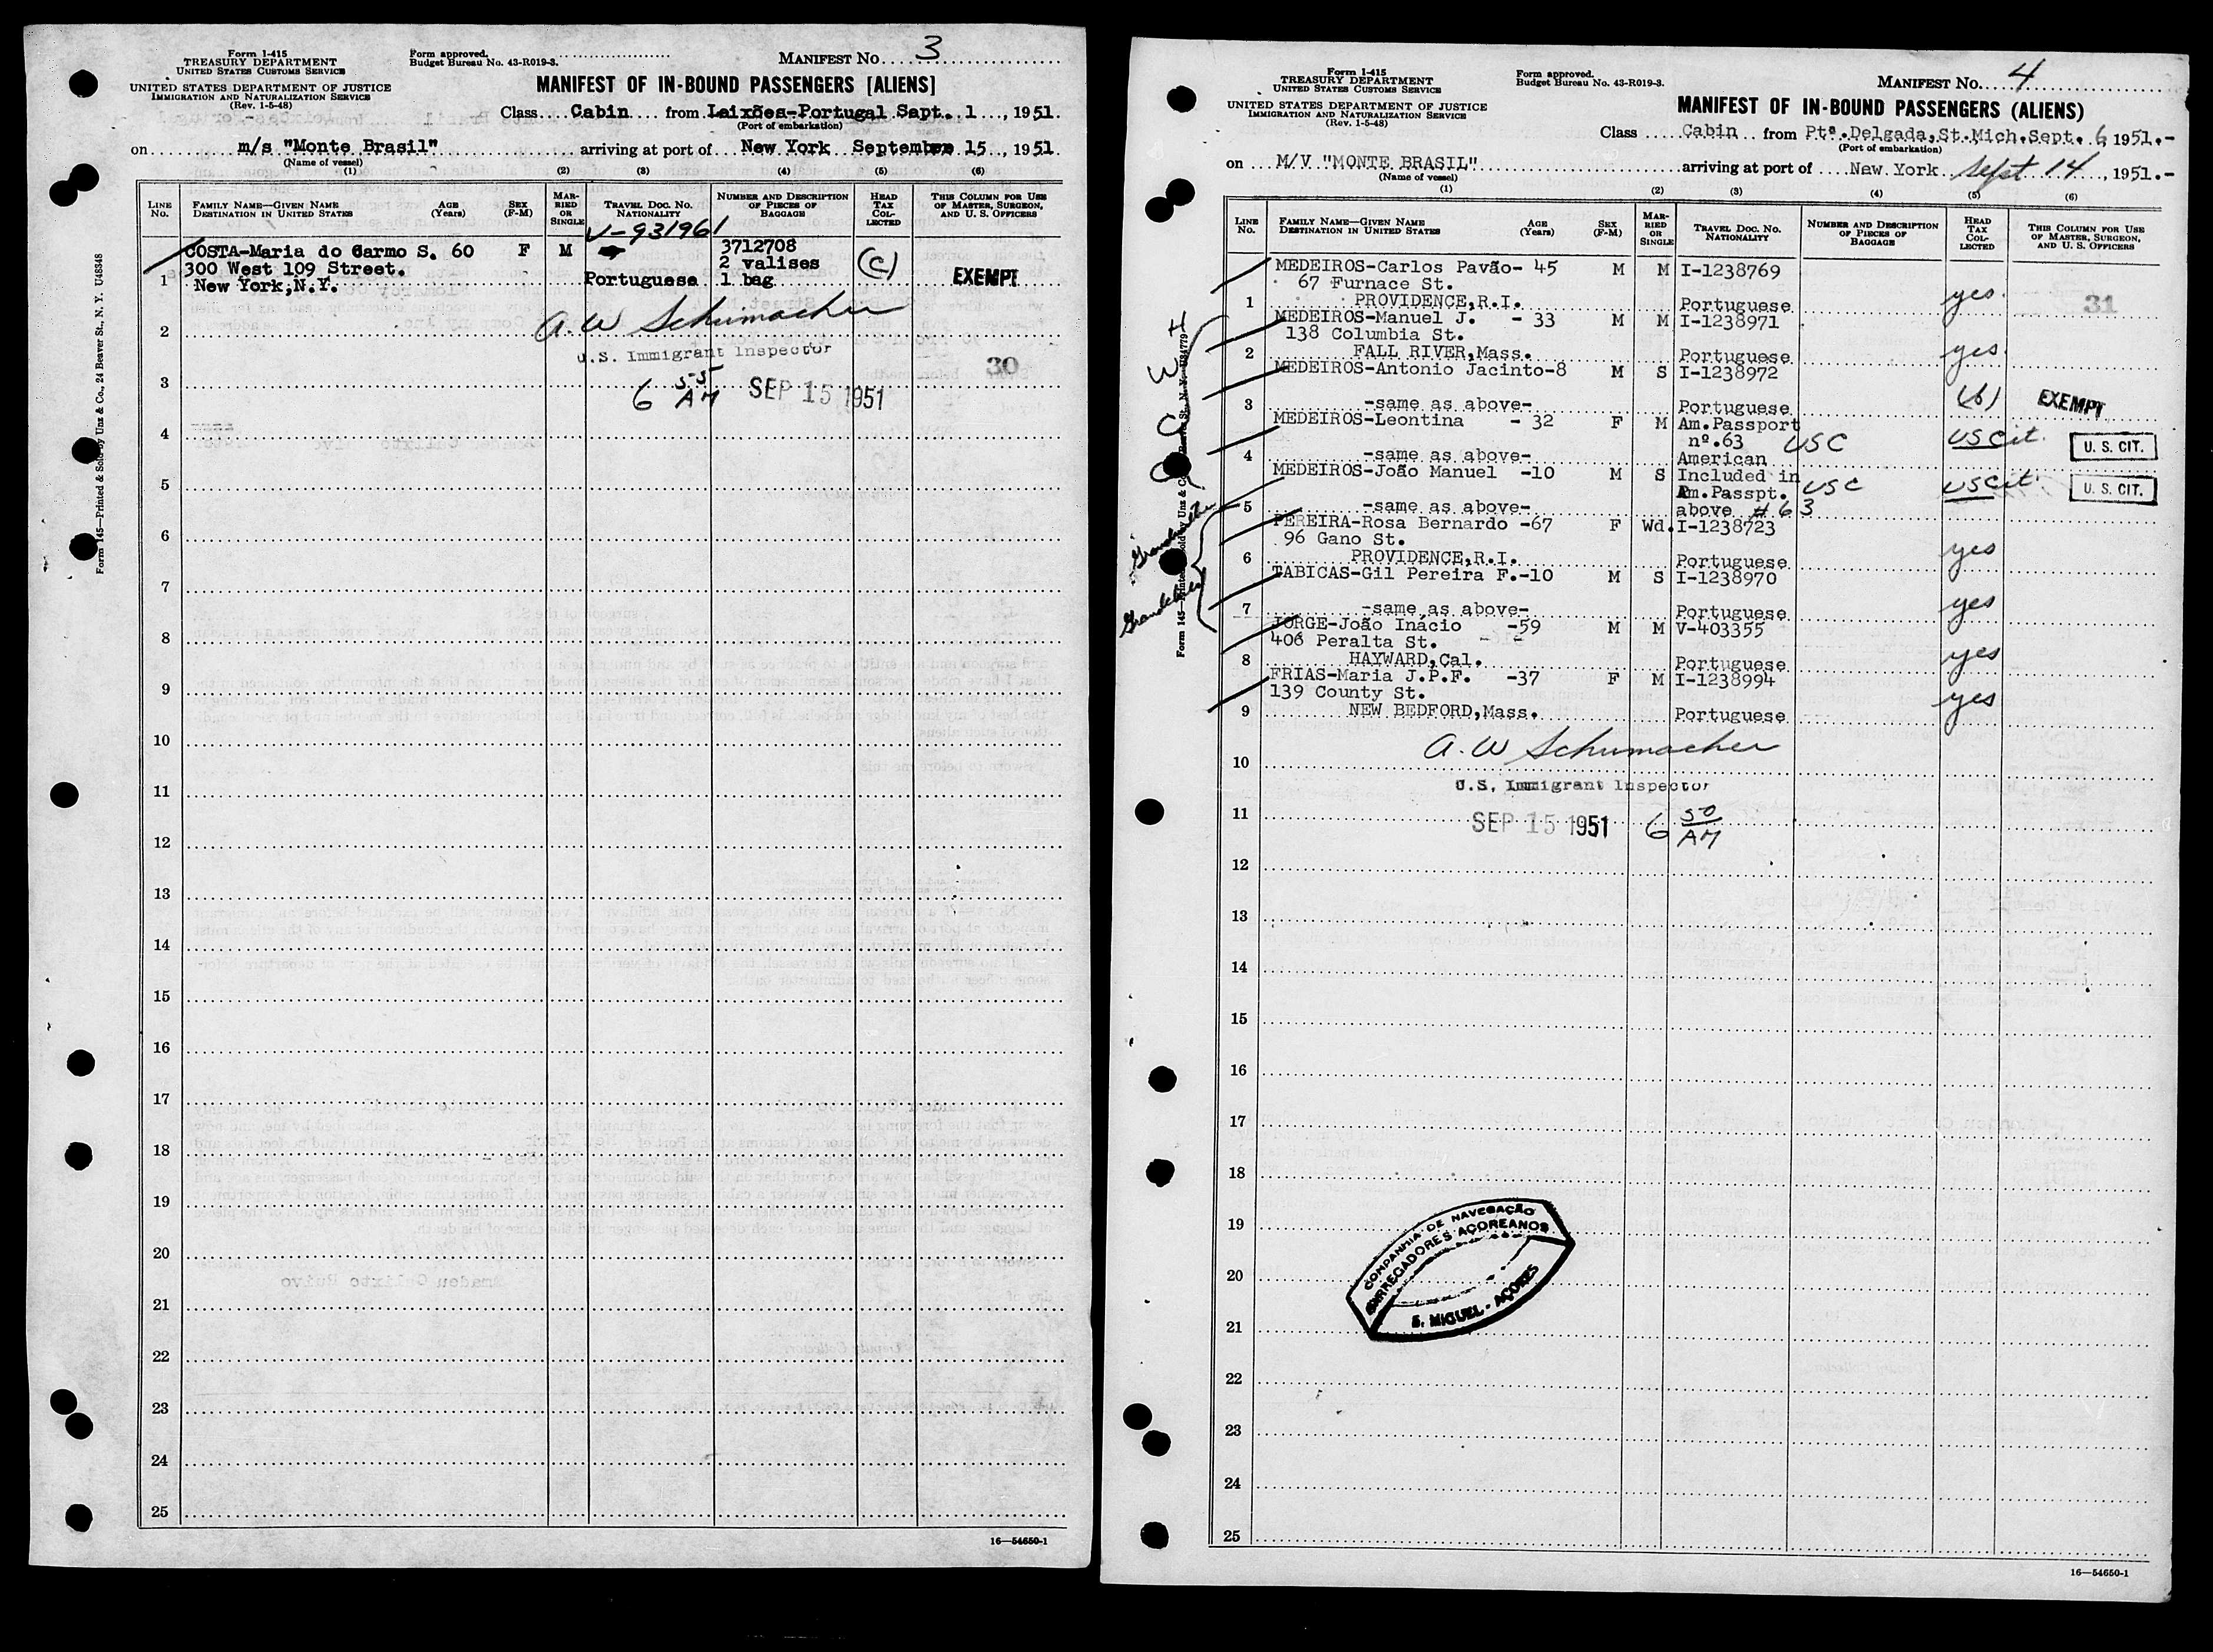 Form I-415
TREASURY DEPARTMENT
UNITED STATES CUSTOMS SERVICE
UNITED STATES DEPARTMENT OF JUSTICE
IMMIGRATION AND NATURALIZATION SERVICE
(Rev. 1-5-48)
Form approved.
Budget Bureau No. 43-R019-3.
MANIFEST NO. 3
MANIFEST OF IN-BOUND PASSENGERS [ALIENS]
Class Cabin from Leixões-Portugal Sept. 1, 1951.
(Port of embarkation)
on m/s "Monte Brasil" arriving at port of New York September 15, 1951.
(Name of vessel)
(1) (2) (3) (4) (5) (6)
LINE No.
FAMILY NAME—GIVEN NAME
DESTINATION IN UNITED STATES
AGE (Years)
SEX (F-M)
MARRIED OR SINGLE
TRAVEL DOC. NO.
NATIONALITY
NUMBER AND DESCRIPTION OF PIECES OF BAGGAGE
HEAD TAX COLLECTED
THIS COLUMN FOR USE OF MASTER, SURGEON, AND U. S. OFFICERS
V-931961
COSTA-Maria do Carmo S. 60 F M 3712708
300 West 109 Street. 2 valises (c)
1 New York, N.Y. Portuguese 1 bag EXEMPT
A. W Schumacher
2
U.S. Immigrant Inspector
30
3 6 55 AM SEP 15 1951
4
5
6
7
8
9
10
11
12
13
14
15
16
17
18
19
20
21
22
23
24
25
16—54650-1
Form 145—Printed & Sold by Unz & Co., 24 Beaver St., N. Y. U48348
Form I-415
TREASURY DEPARTMENT
UNITED STATES CUSTOMS SERVICE
UNITED STATES DEPARTMENT OF JUSTICE
IMMIGRATION AND NATURALIZATION SERVICE
(Rev. 1-5-48)
Form approved.
Budget Bureau No. 43-R019-3.
MANIFEST NO. 4
MANIFEST OF IN-BOUND PASSENGERS (ALIENS)
Class Cabin from Ptª.Delgada,St.Mich.Sept. 6, 1951.-
(Port of embarkation)
on M/V "MONTE BRASIL" arriving at port of New York Sept 14, 1951.-
(Name of vessel)
(1) (2) (3) (4) (5) (6)
LINE No.
FAMILY NAME—GIVEN NAME
DESTINATION IN UNITED STATES
AGE (Years)
SEX (F-M)
MARRIED OR SINGLE
TRAVEL DOC. NO.
NATIONALITY
NUMBER AND DESCRIPTION OF PIECES OF BAGGAGE
HEAD TAX COLLECTED
THIS COLUMN FOR USE OF MASTER, SURGEON, AND U. S. OFFICERS
MEDEIROS-Carlos Pavão- 45 M M I-1238769
67 Furnace St.
1 PROVIDENCE,R.I. Portuguese yes 31
MEDEIROS-Manuel J. - 33 M M I-1238971
138 Columbia St.
2 FALL RIVER,Mass. Portuguese yes
MEDEIROS-Antonio Jacinto-8 M S I-1238972
3 -same as above- Portuguese (b) EXEMPT
MEDEIROS-Leontina - 32 F M Am.Passport
nº.63 USC US Cit. U. S. CIT.
4 -same as above- American
MEDEIROS-João Manuel -10 M S Included in
Am.Passpt. USC US Cit. U. S. CIT.
5 -same as above- above # 63
PEREIRA-Rosa Bernardo -67 F Wd. I-1238723
96 Gano St.
6 PROVIDENCE,R.I. Portuguese yes
TABICAS-Gil Pereira F.-10 M S I-1238970
7 -same as above- Portuguese yes
JORGE-João Inácio -59 M M V-403355
406 Peralta St.
8 HAYWARD,Cal. Portuguese yes
FRIAS-Maria J.P.F. -37 F M I-1238994
139 County St.
9 NEW BEDFORD,Mass. Portuguese yes
A. W Schumacher
10
U.S. Immigrant Inspector
11 SEP 15 1951 6 50 AM
12
13
14
15
16
17
18
19
20
21
22
23
24
25
COMPANHIA DE NAVEGAÇÃO
CARREGADORES AÇOREANOS
S. MIGUEL - AÇORES
16—54650-1